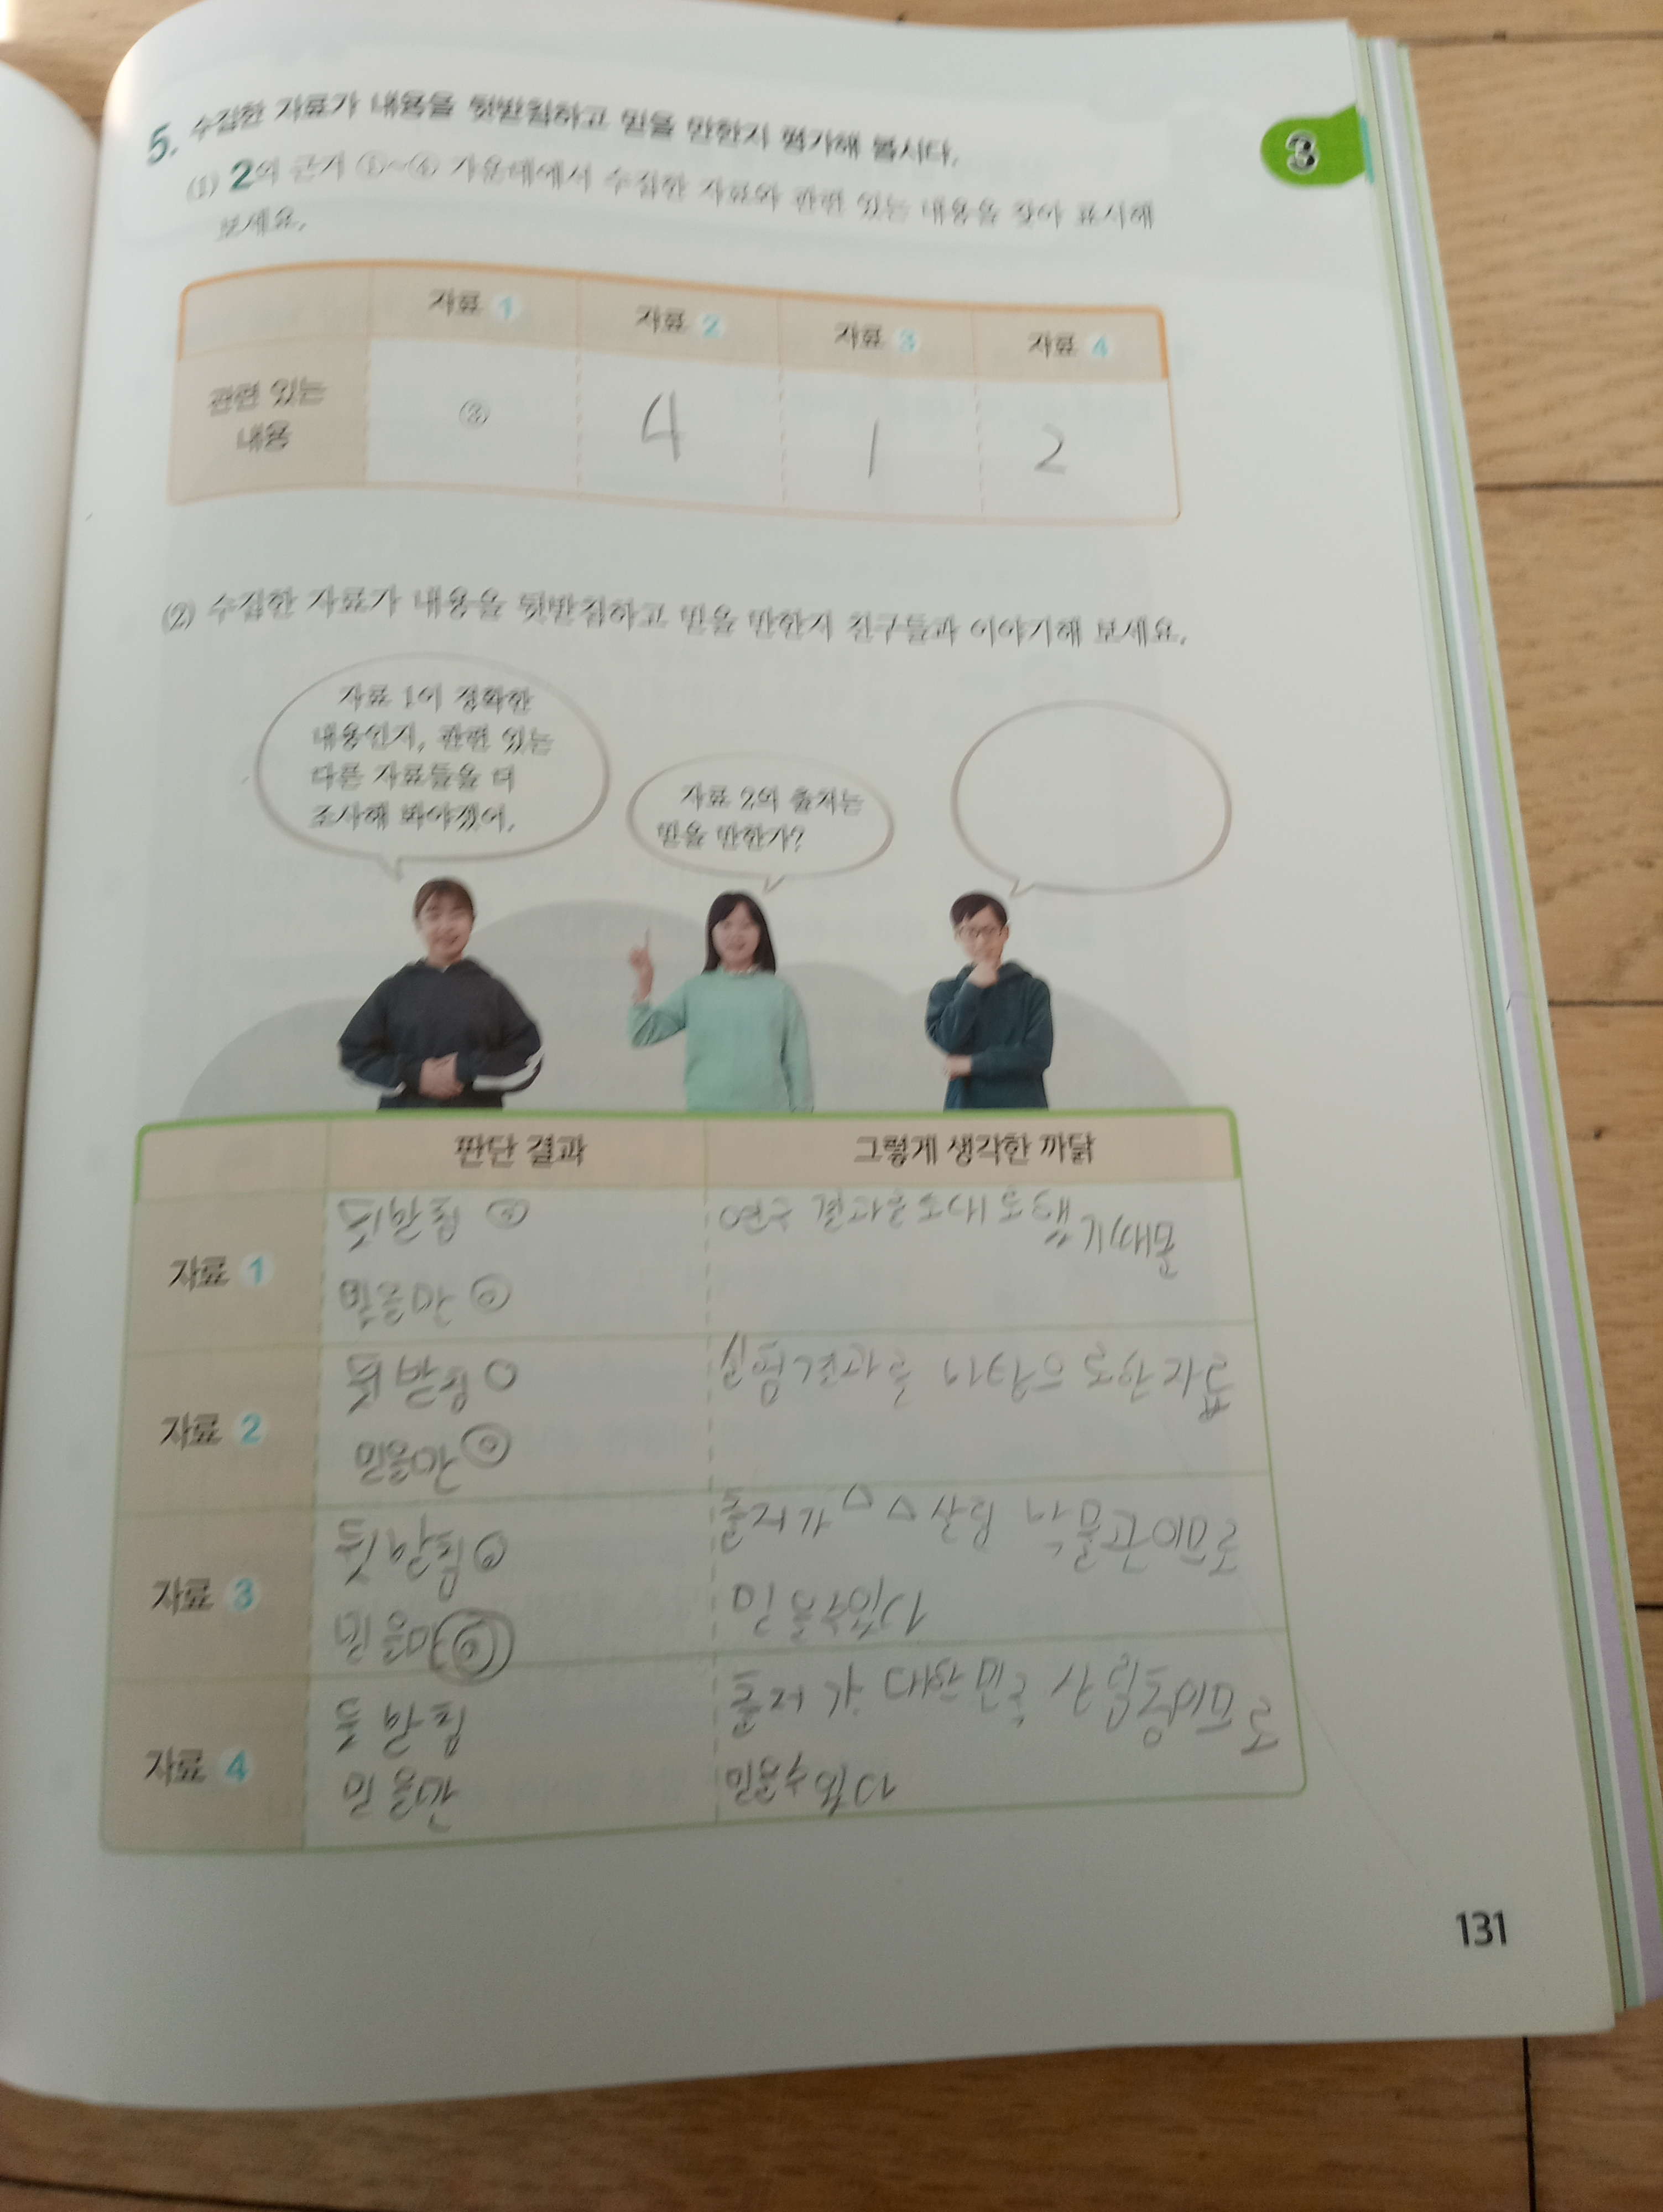 3
5. 수집한 자료가 내용을 뒷받침하고 믿을 만한지 평가해 봅시다.
(1) 2의 근거 ①~④ 가운데에서 수집한 자료와 관련 있는 내용을 찾아 표시해
보세요.
자료 1 자료 2 자료 3 자료 4
관련 있는
내용
③ 4 1 2
(2) 수집한 자료가 내용을 뒷받침하고 믿을 만한지 친구들과 이야기해 보세요.
자료 1이 정확한
내용인지, 관련 있는
다른 자료들을 더
조사해 봐야겠어.
자료 2의 출처는
믿을 만한가?
판단 결과 그렇게 생각한 까닭
자료 1
연구 결과를 토대로 했기 때문
자료 2
믿을만
실험결과를 바탕으로한 자료
자료 3
믿을만
출저가 △△산림 박물관이므로
믿을수있다
자료 4
믿을만
출저가 대한민국 산림청이므로
믿을수있다
131